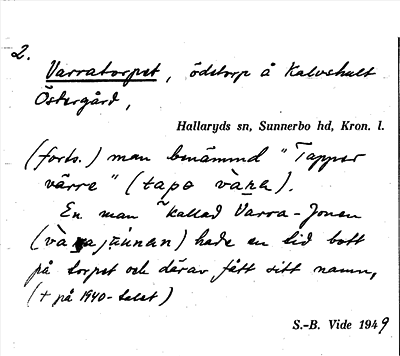 2.
Varratorpet, ödetorp å Kalvshult
Östergård,
Hallaryds sn, Sunnerbo hd, Kron. l.
(forts.) man benämnd "Tapper
värre" (
En man kallad Varra-Jonen
( ) hade en tid bott
på torpet och därav fått sitt namn,
(† på 1940-talet)
S.-B. Vide 1949